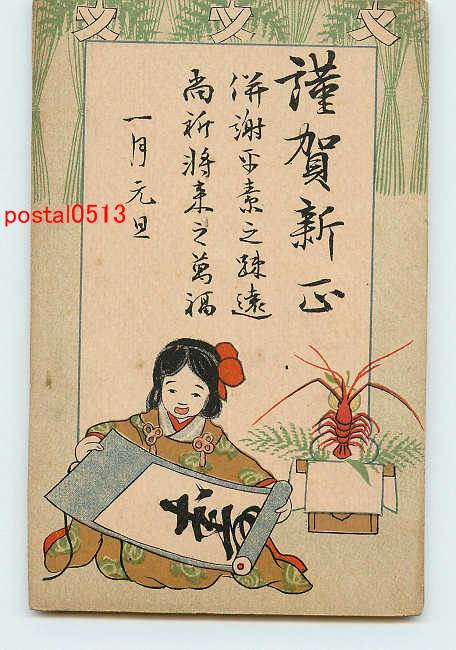 謹賀新正
併謝平素之疎遠
尚祈将来之萬福
一月元旦
postal0513
寿